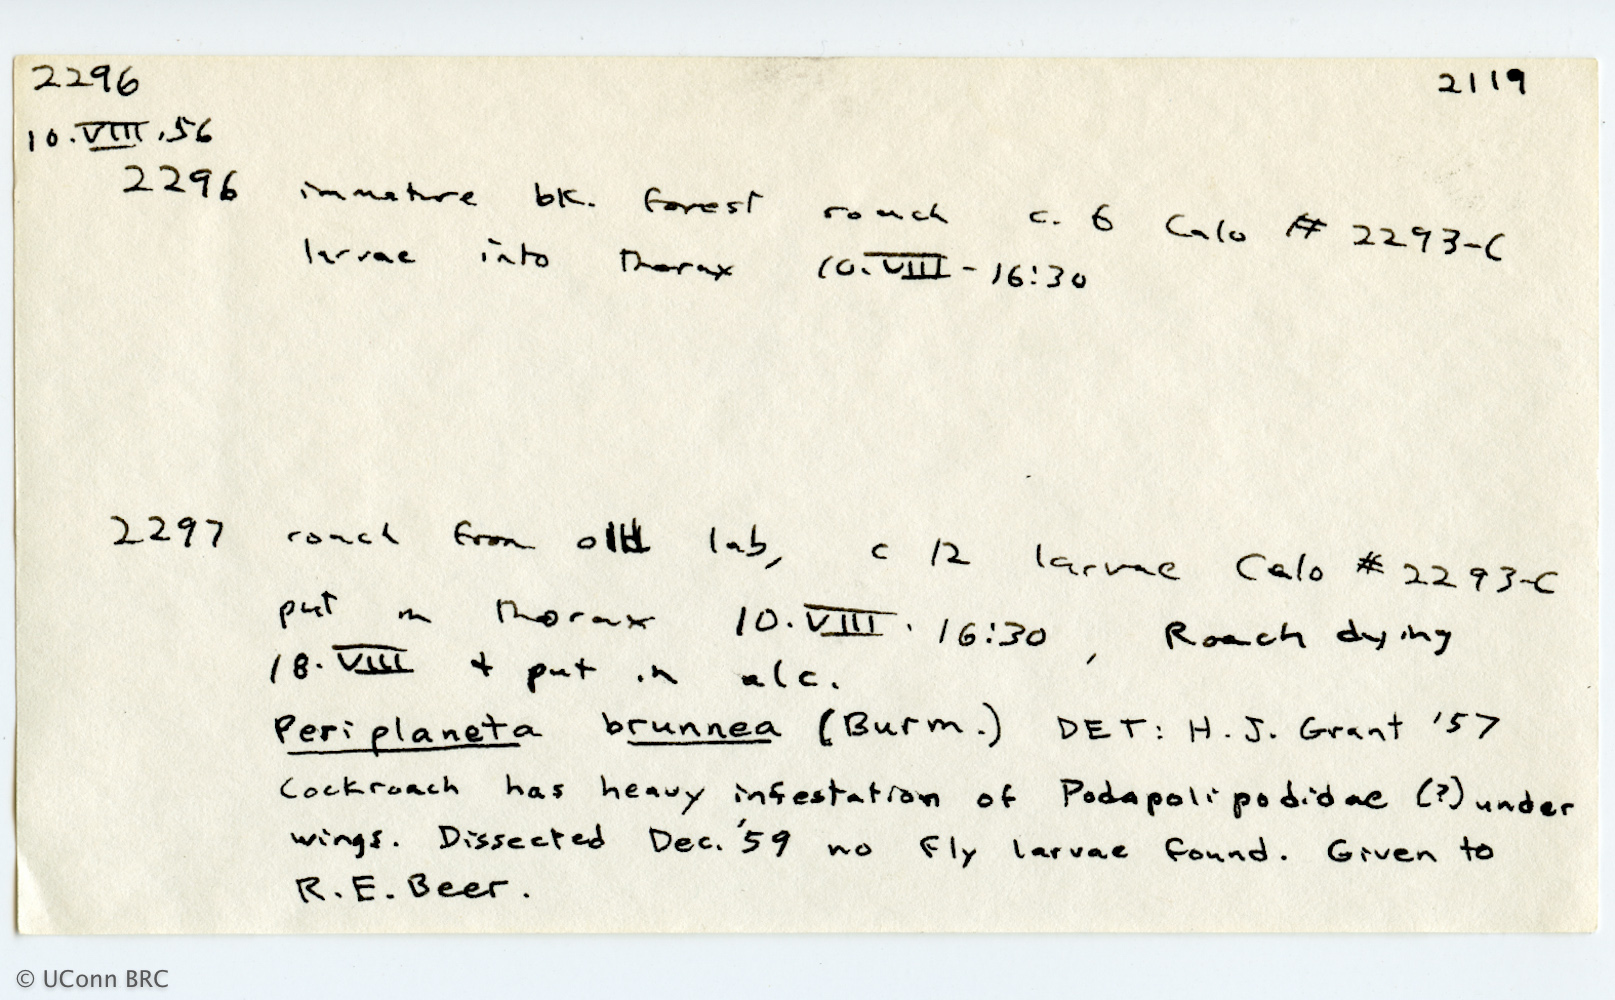 2296 2119
10.VIII.56
2296 immature bk. forest roach c. 6 Calo # 2293-C
larvae into thorax 10.VIII - 16:30
2297 roach from old lab, c 12 larvae Calo # 2293-C
put in thorax 10.VIII. 16:30, Roach dying
18.VIII + put in alc.
Periplaneta brunnea (Burm.) DET: H.J. Grant '57
Cockroach has heavy infestation of Podapolipodidae (?) under
wings. Dissected Dec. '59 no fly larvae found. Given to
R.E. Beer.
© UConn BRC